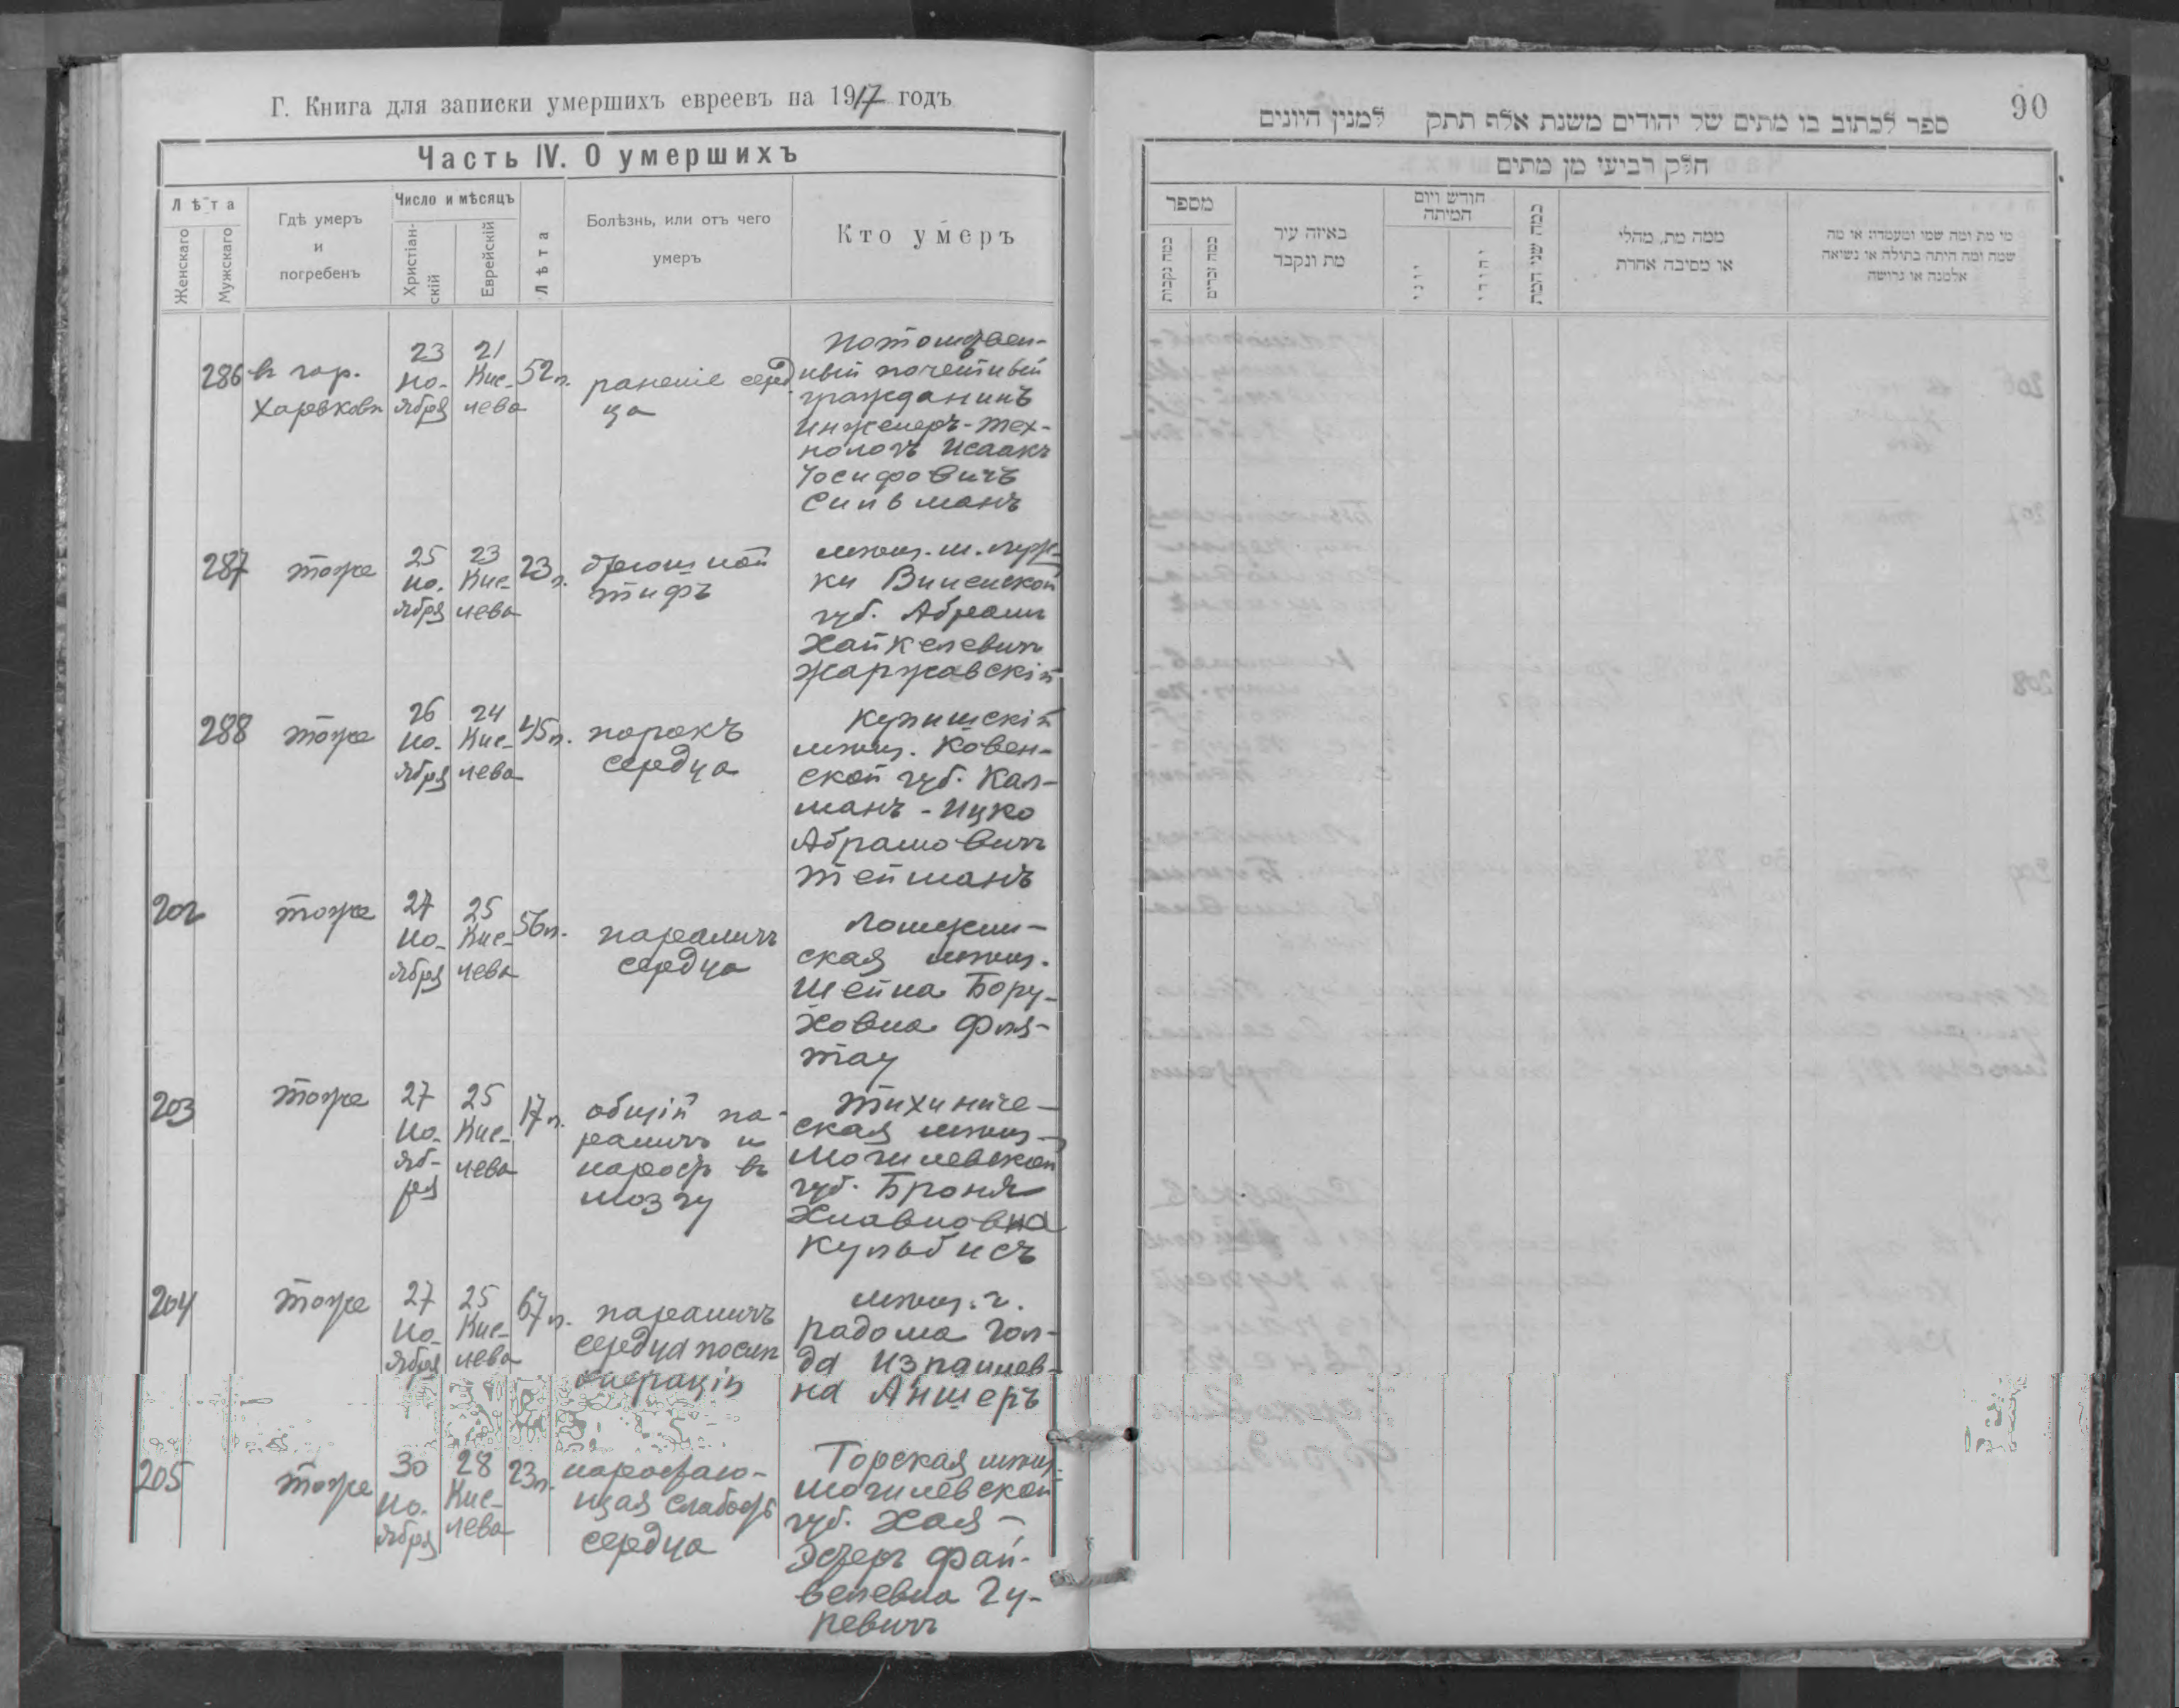 Г. Книга для записки умершихъ евреевъ на 1917 годъ
Часть IV. О умершихъ
Лѣта
Женскаго
Мужскаго
Гдѣ умеръ
и
погребенъ
Число и мѣсяцъ
Христіан-
скій
Еврейскій
Лѣта
Болѣзнь, или отъ чего
умеръ
Кто умеръ
286
въ гор.
Харьковѣ
23
но-
ября
21
Кис-
лева
52 л.
раненіе серд
ца
Потомствен-
ный почетный
гражданинъ
инженеръ-тех-
нологъ Исаакъ
Іосифовичъ
Сильманъ
287
тоже
25
но-
ября
23
Кис-
лева
23 л.
брюшной
тифъ
мѣщ. м.
ки Виленской
губ. Абрамъ
Хайкелевичъ
Жаржавскій
288
тоже
26
но-
ября
24
Кис-
лева
45 л.
порокъ
сердца
Купишскій
мѣщ. Ковен-
ской губ. Кал-
манъ-Ицко
Абрамовичъ
Тейманъ
202
тоже
27
но-
ября
25
Кис-
лева
56 л.
параличъ
сердца
Ломжин-
ская мѣщ.
Шейна Бору-
ховна Фля-
тау
203
тоже
27
но-
яб-
ря
25
Кис-
лева
17 л.
общій па-
раличъ и
наростъ въ
мозгу
Тихиниче-
ская мѣщ.
Могилевской
губ. Броня
Хлавновна
Кульбисъ
204
тоже
27
но-
ября
25
Кис-
лева
67 л.
параличъ
сердца послѣ
операціи
мѣщ. г.
Радома Гол-
да Израилев-
на Аншеръ
205
тоже
30
но-
ября
28
Кис-
лева
23 л.
наростаю-
щая слабость
сердца
Горская мѣщ.
Могилевской
губ. Хая-
Эстеръ Фай-
велевна Гу-
ревичъ
90
ספר לכתוב בו מתים של יהודים משנת אלף תתק למנין היונים
חלק רביעי מן מתים
מספר
כמה נקבות
כמה זכרים
באיזה עיר
מת ונקבר
חודש ויום
המיתה
יוני
יהודי
כמה שני המת
ממה מת, מחלי
או מסיבה אחרת
מי מת ומה שמו ומעמדו או מה
שמה ומה היתה בתולה או נשואה
אלמנה או גרושה